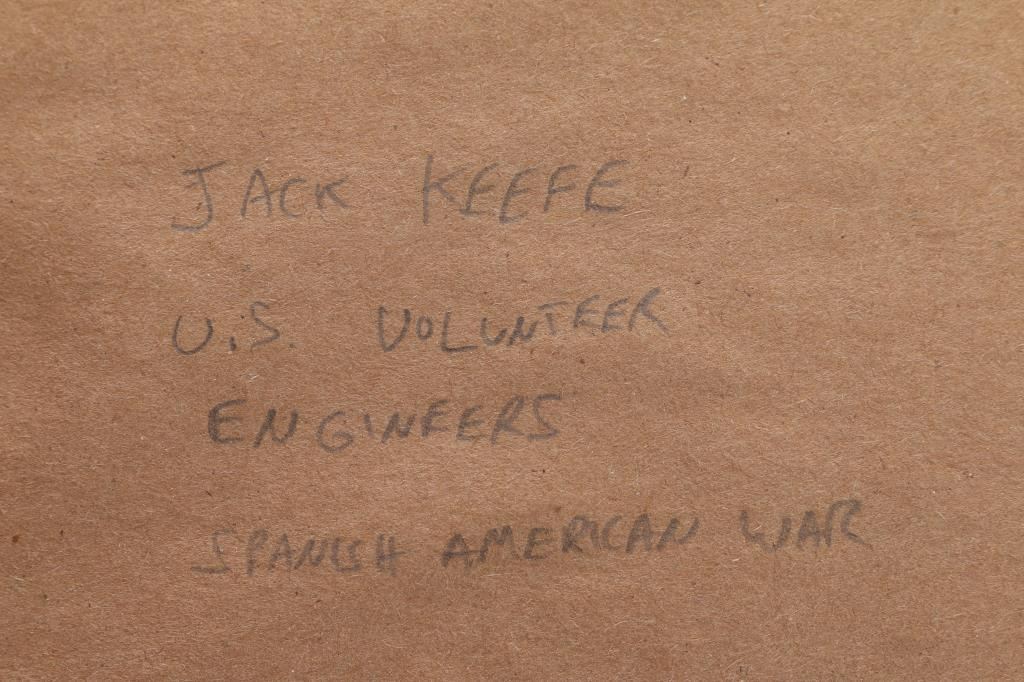 JACK KEEFE
U.S. VOLUNTEER
ENGINEERS
SPANISH AMERICAN WAR